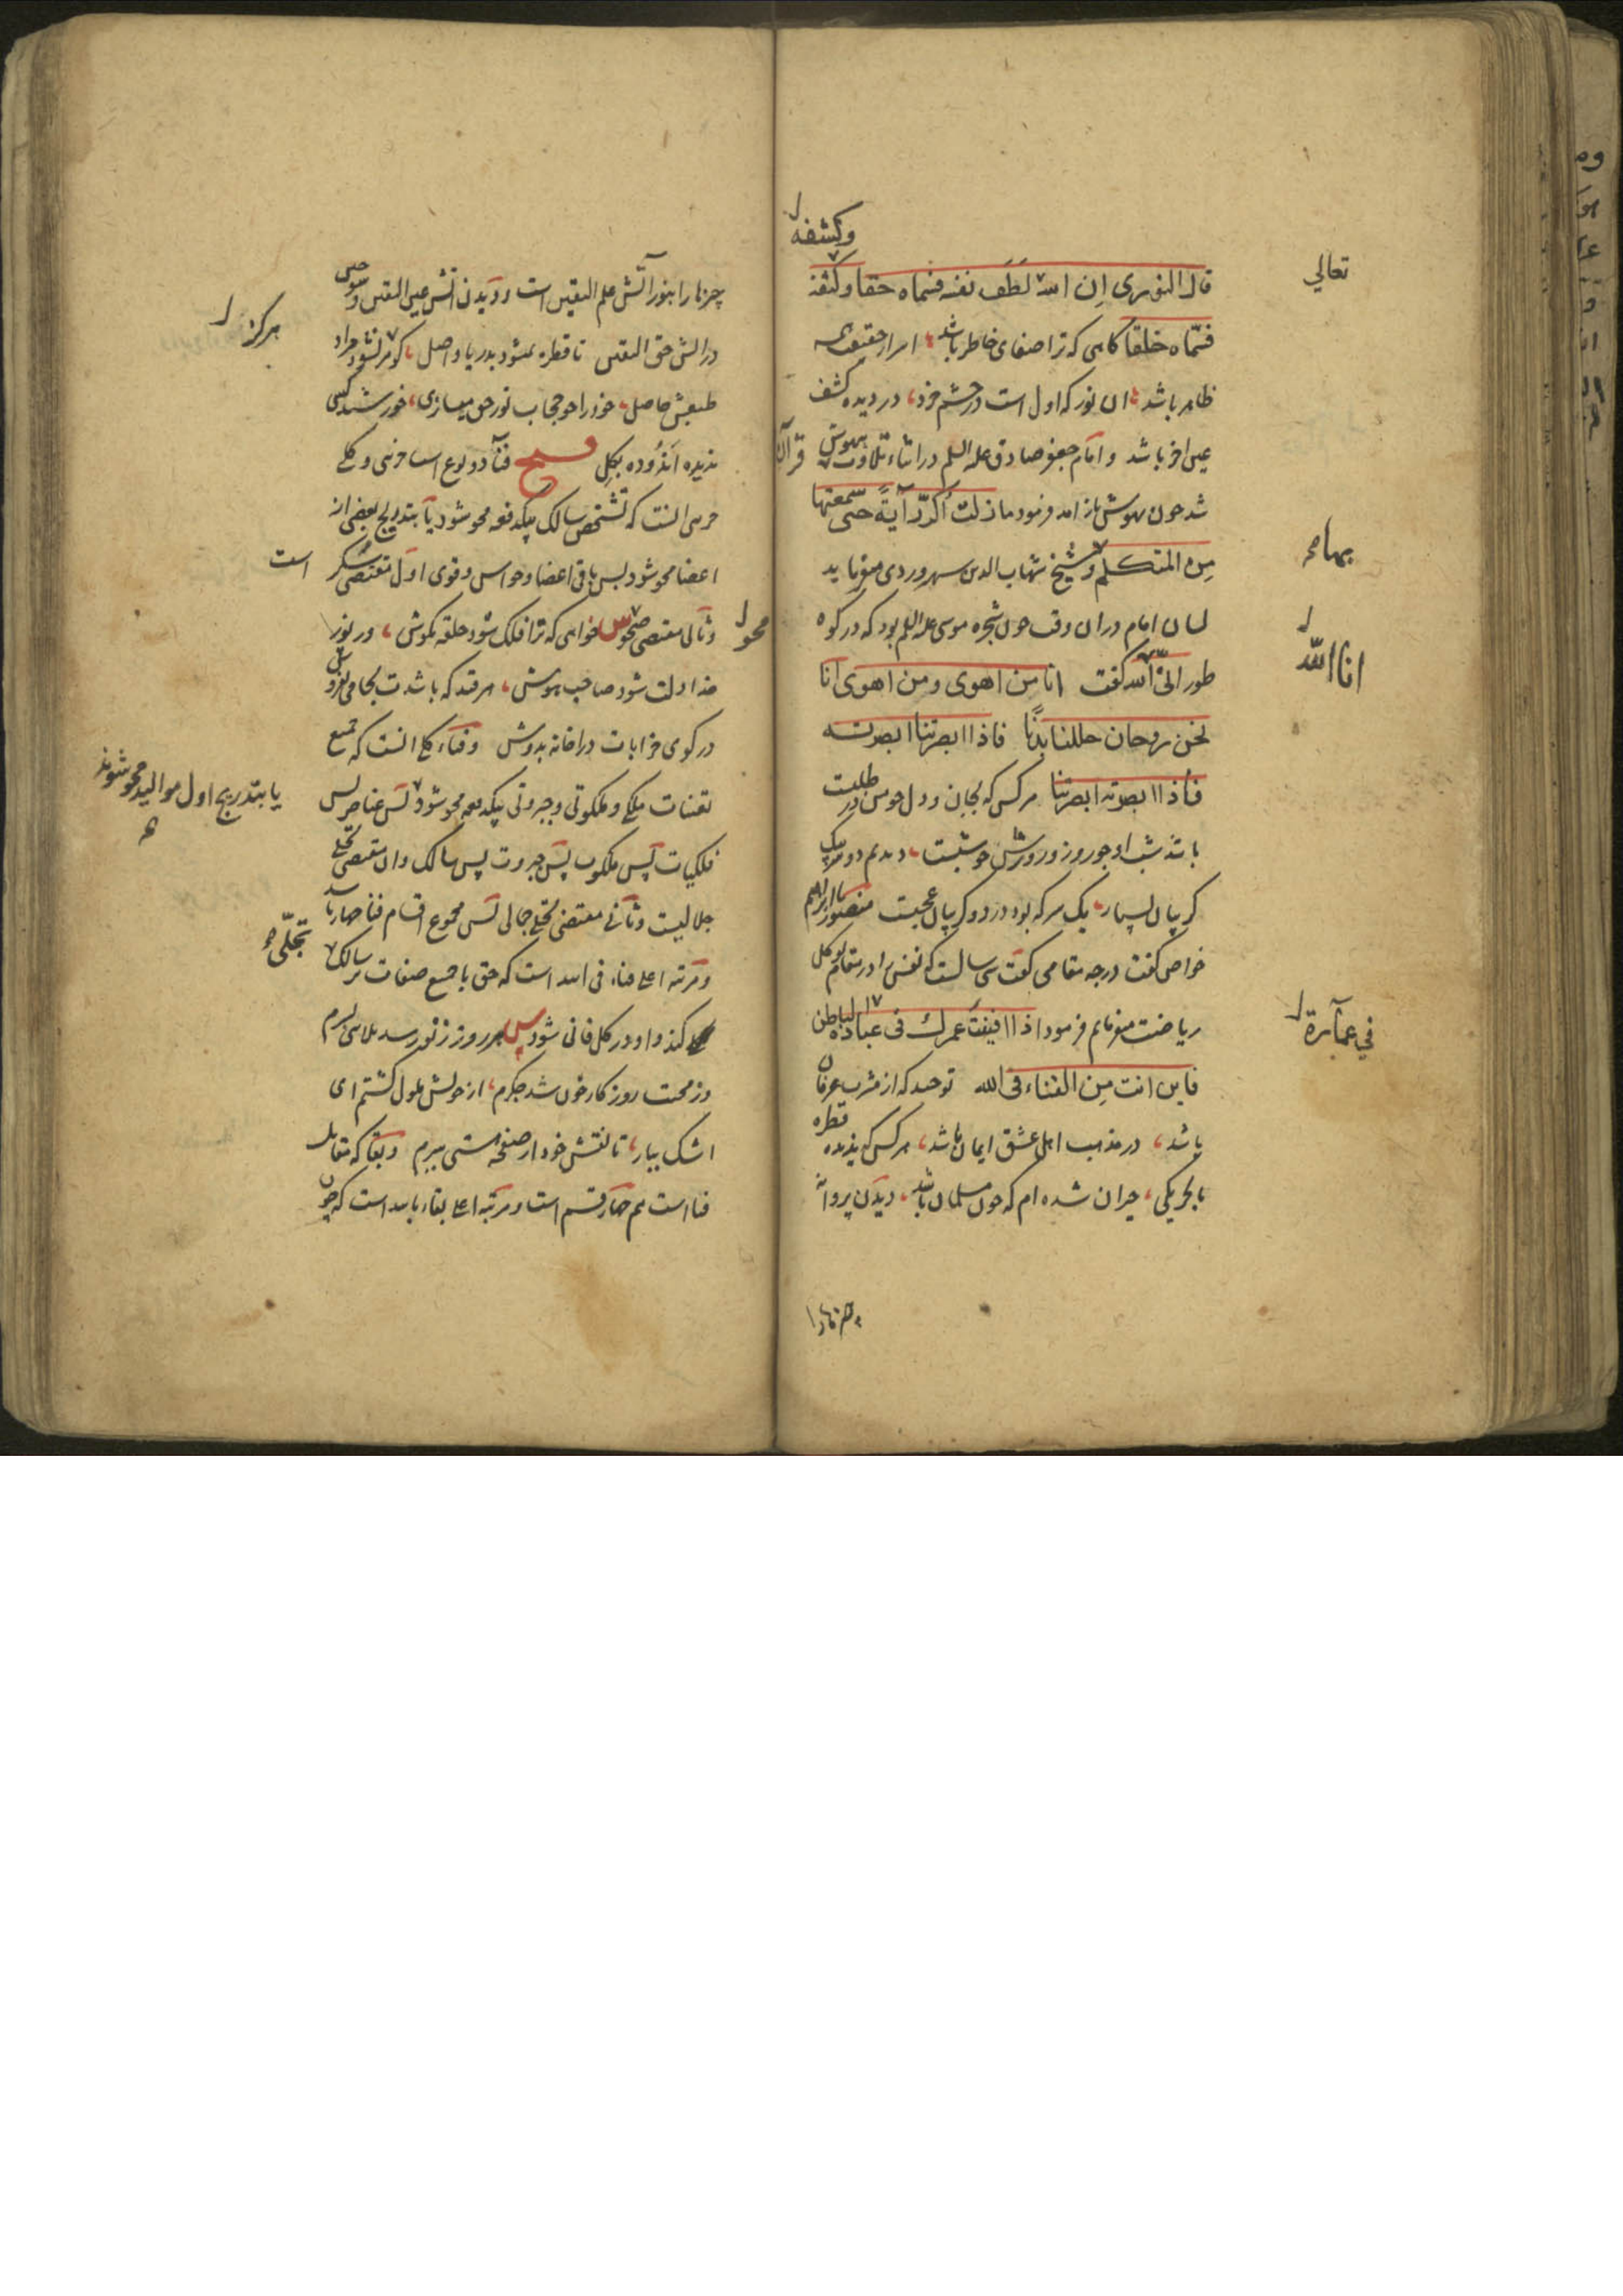 وكثفه
قال النوری ان الله لطف نفسه فسماه حقا وكثفه
تعالی
فسمّاه خلقا كاهی كه ترا صفای خاطر باشد اسرار حقیقت همه
ظاهر باشد ان نور كه اول است در چشم خرد در دیده كشف
عین اخر باشد و امام جعفر صادق علیه السلم در اثناء تلاوت بیهوش
قرآن
شد چون بهوش باز امد فرمود ما زلت أكرّر آیةً حتی سمعتها
من المتكلم و شیخ شهاب الدین سهروردی میفرماید
بها
لسان امام در ان وقت چون شجره موسی علیه السلم بود كه در كوه
طور انی الله كفت انا من اهوی و من اهوی انا
انا الله
نحن روحان حللنا بدنًا فاذا ابصرتنا ابصرته
فاذا ابصرته ابصرتنا هر كس كه بجان و دل خویش در طلبت
باشد شب او چو روز و روزش چو شبست دیدم دو
كریبان یك سر كه بود در دو كریبان عجبست منصور ابراهیم
خواص كفت درچه مقامی كفت سی سالست كه نفس را در مقام توكل
ریاضت میفرمایم فرمود اذا افنیت عمرك فی عباده الباطن
فی عمارة
فاین انت من الفناء فی الله توحید كه از مشرب عرفان
باشد در مذهب اهل عشق ایمان باشد هر كس كه ندیده قطره
با بحر یكی حیران شده ام كه چون مسلمان باشد و دیدن پروانه
چیزها را
چیزها را بنور آتش علم الیقین است و دیدن آتش عین الیقین و سوختن
در آتش حق الیقین تا قطره نشود بدریا واصل كوهر نشود مراد
هركز
طبعش حاصل خود را چو حجاب نور حق میسازی خورشید كسی
ندیده اندوده بكل فنا دو نوع است جزئی و كلی
جزئی انست كه تشخص سالك بیكدفعه محو شود یا بتدریج بعضی از
اعضا محو شود پس باقی اعضا و حواس و قوی اول مقتضی سكر
است
و ثانی مقتضی صحو خواهی كه ترا فلك شود حلقه بكوش ور نور
محو
خدا دلت شود صاحب هوش هر قند كه باشدت بجامی بفروش
در كوی خرابات درا خانه بدوش و فناء كلی انست كه جمیع
تعینات ملكی و ملكوتی و جبروتی بیكدفعه محو شود پس عناصر پس
یا بتدریج اول موالید محو شوند
فلكیات پس ملكوت پس جبروت پس سالك و اول مقتضی تجلی
جلالیست و ثانی مقتضی تجلی جمالی پس مجموع اقسام فنا چهار باشد
و مرتبه اعلی فناء فی الله است كه حق با جمیع صفات بر سالك
تجلّی
كند و او در كل فانی شود هر روز
وز محنت روزكار خون شد جكرم از خویش ملول كشتم ای
اشك بیار تا نقش خود از صفحه هستی ببرم و بقا كه مقابل
فنا است هم چهار قسم است و مرتبه اعلی بقاء بالله است كه چون